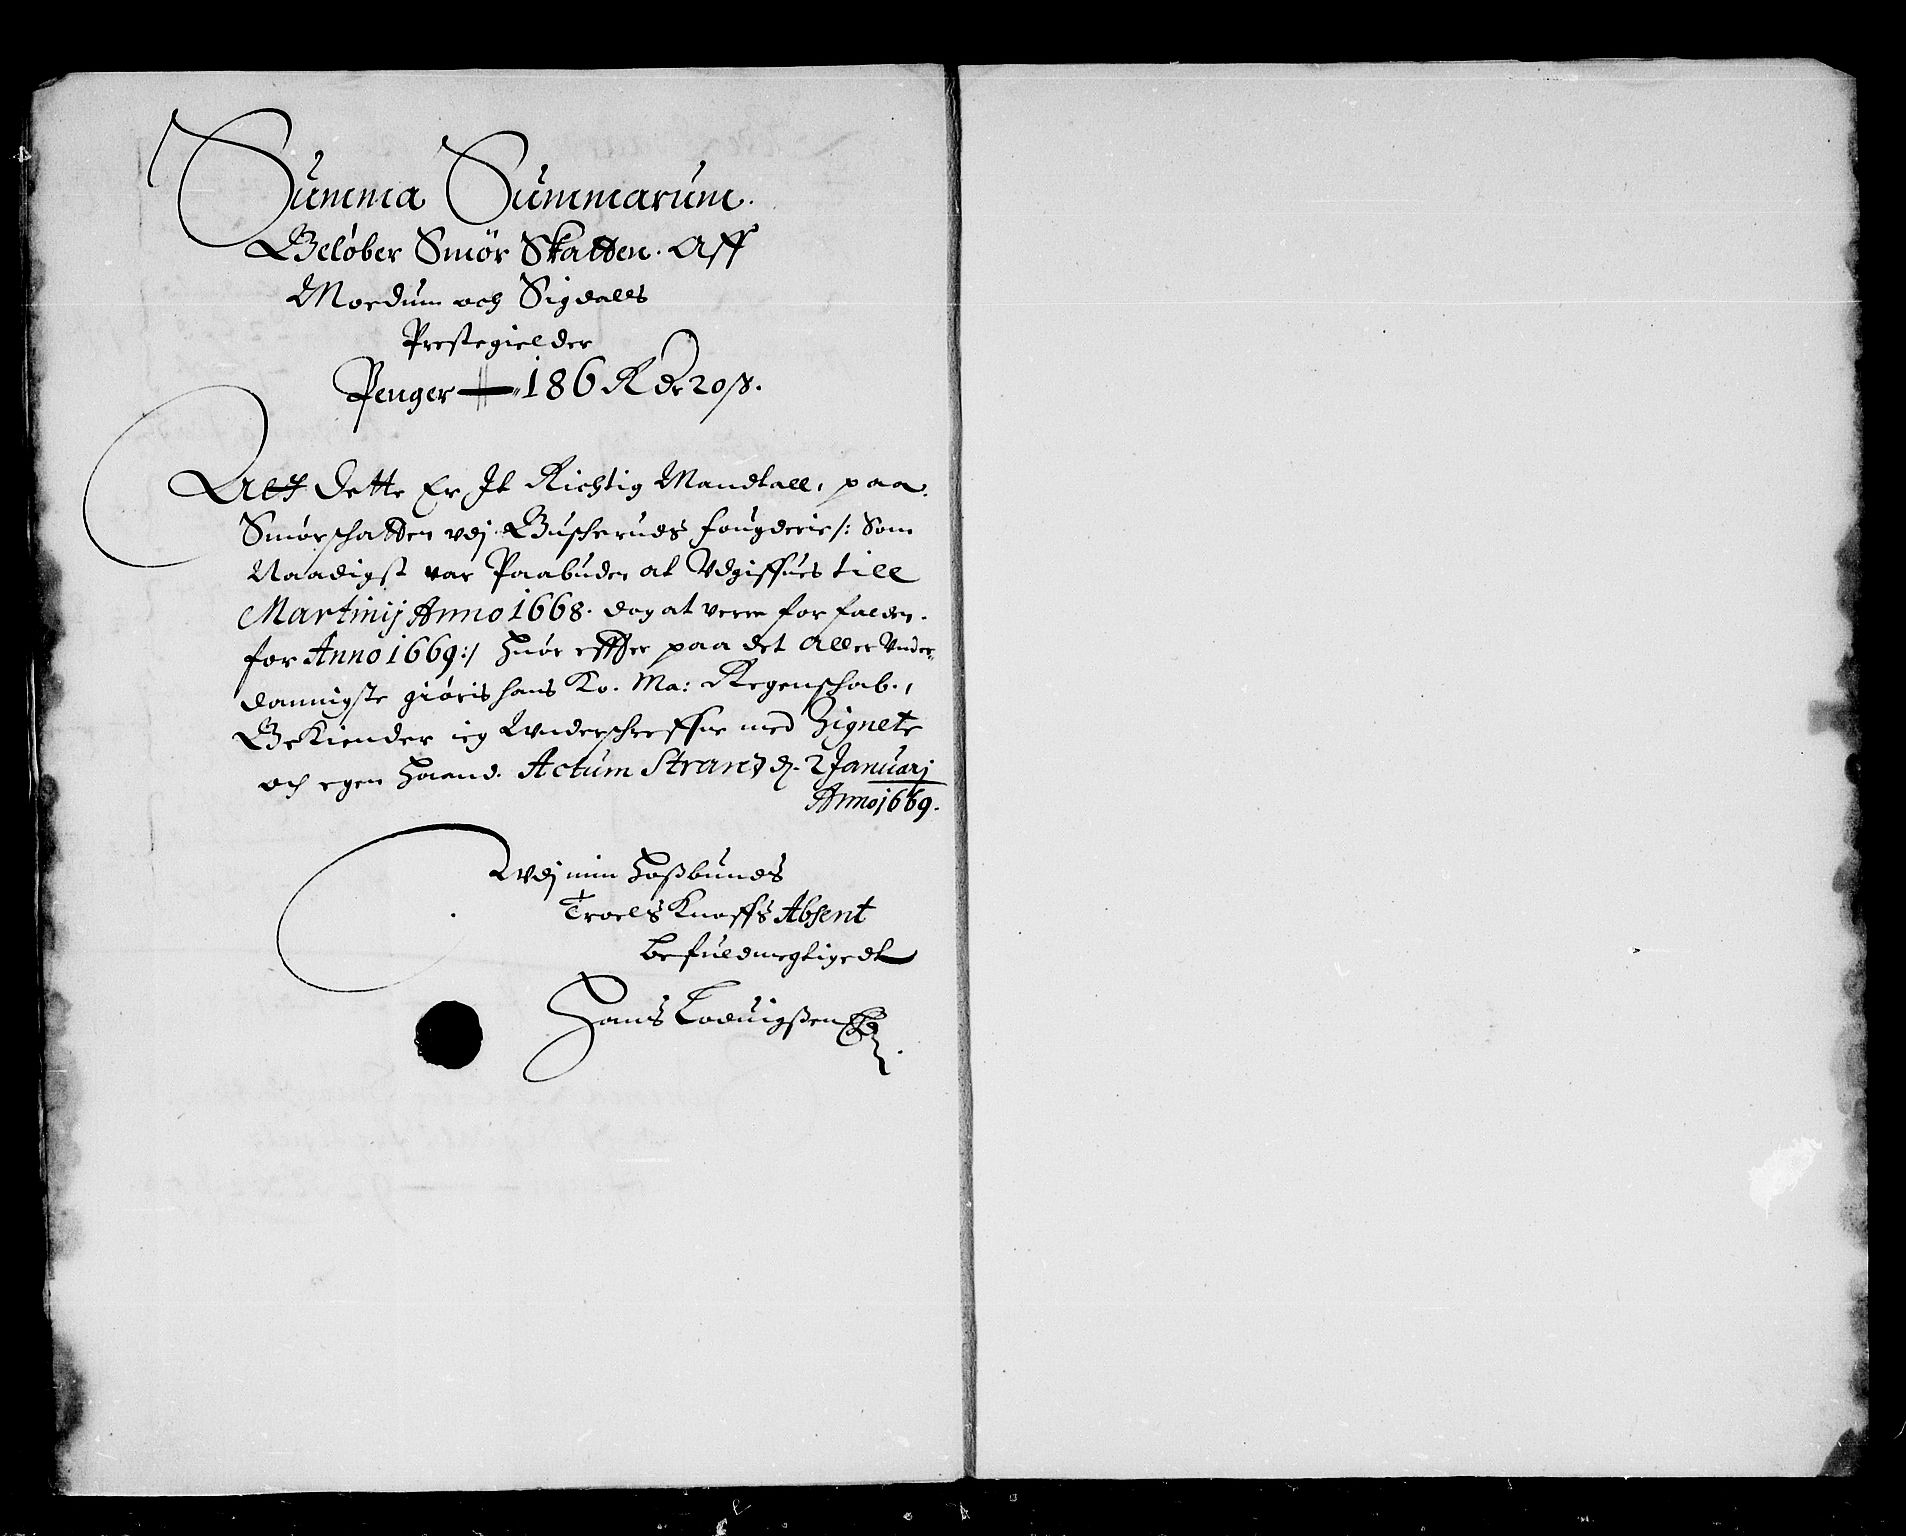 Summa Summarum.
Beløber Smør Skatten. Aff
Modum och Sigdalls
Prestegielder
Penger — 186 Rdr 20 ß.
Att dette Er It Richtig Mandtall, paa
Smørschatten vdj Buscheruds fougderie /: Som
Naadigst var Paabuden at Vdgiffues till
Martinij Anno 1668. dog at vere forfalden.
for Anno 1669 :/ Huor effter paa det Aller Vnder-
dannigste giøris hans Ko. Ma: Regenschab.,
BeKiender ieg Vnderschreffne med Zignete
och egen Haand. Actum Strand d. 2 Januarj
Anno 1669.
Vdj min Hoßbunds
Troels Knoffs Absent
befuldmegtigedt
Hans Lodvigßen